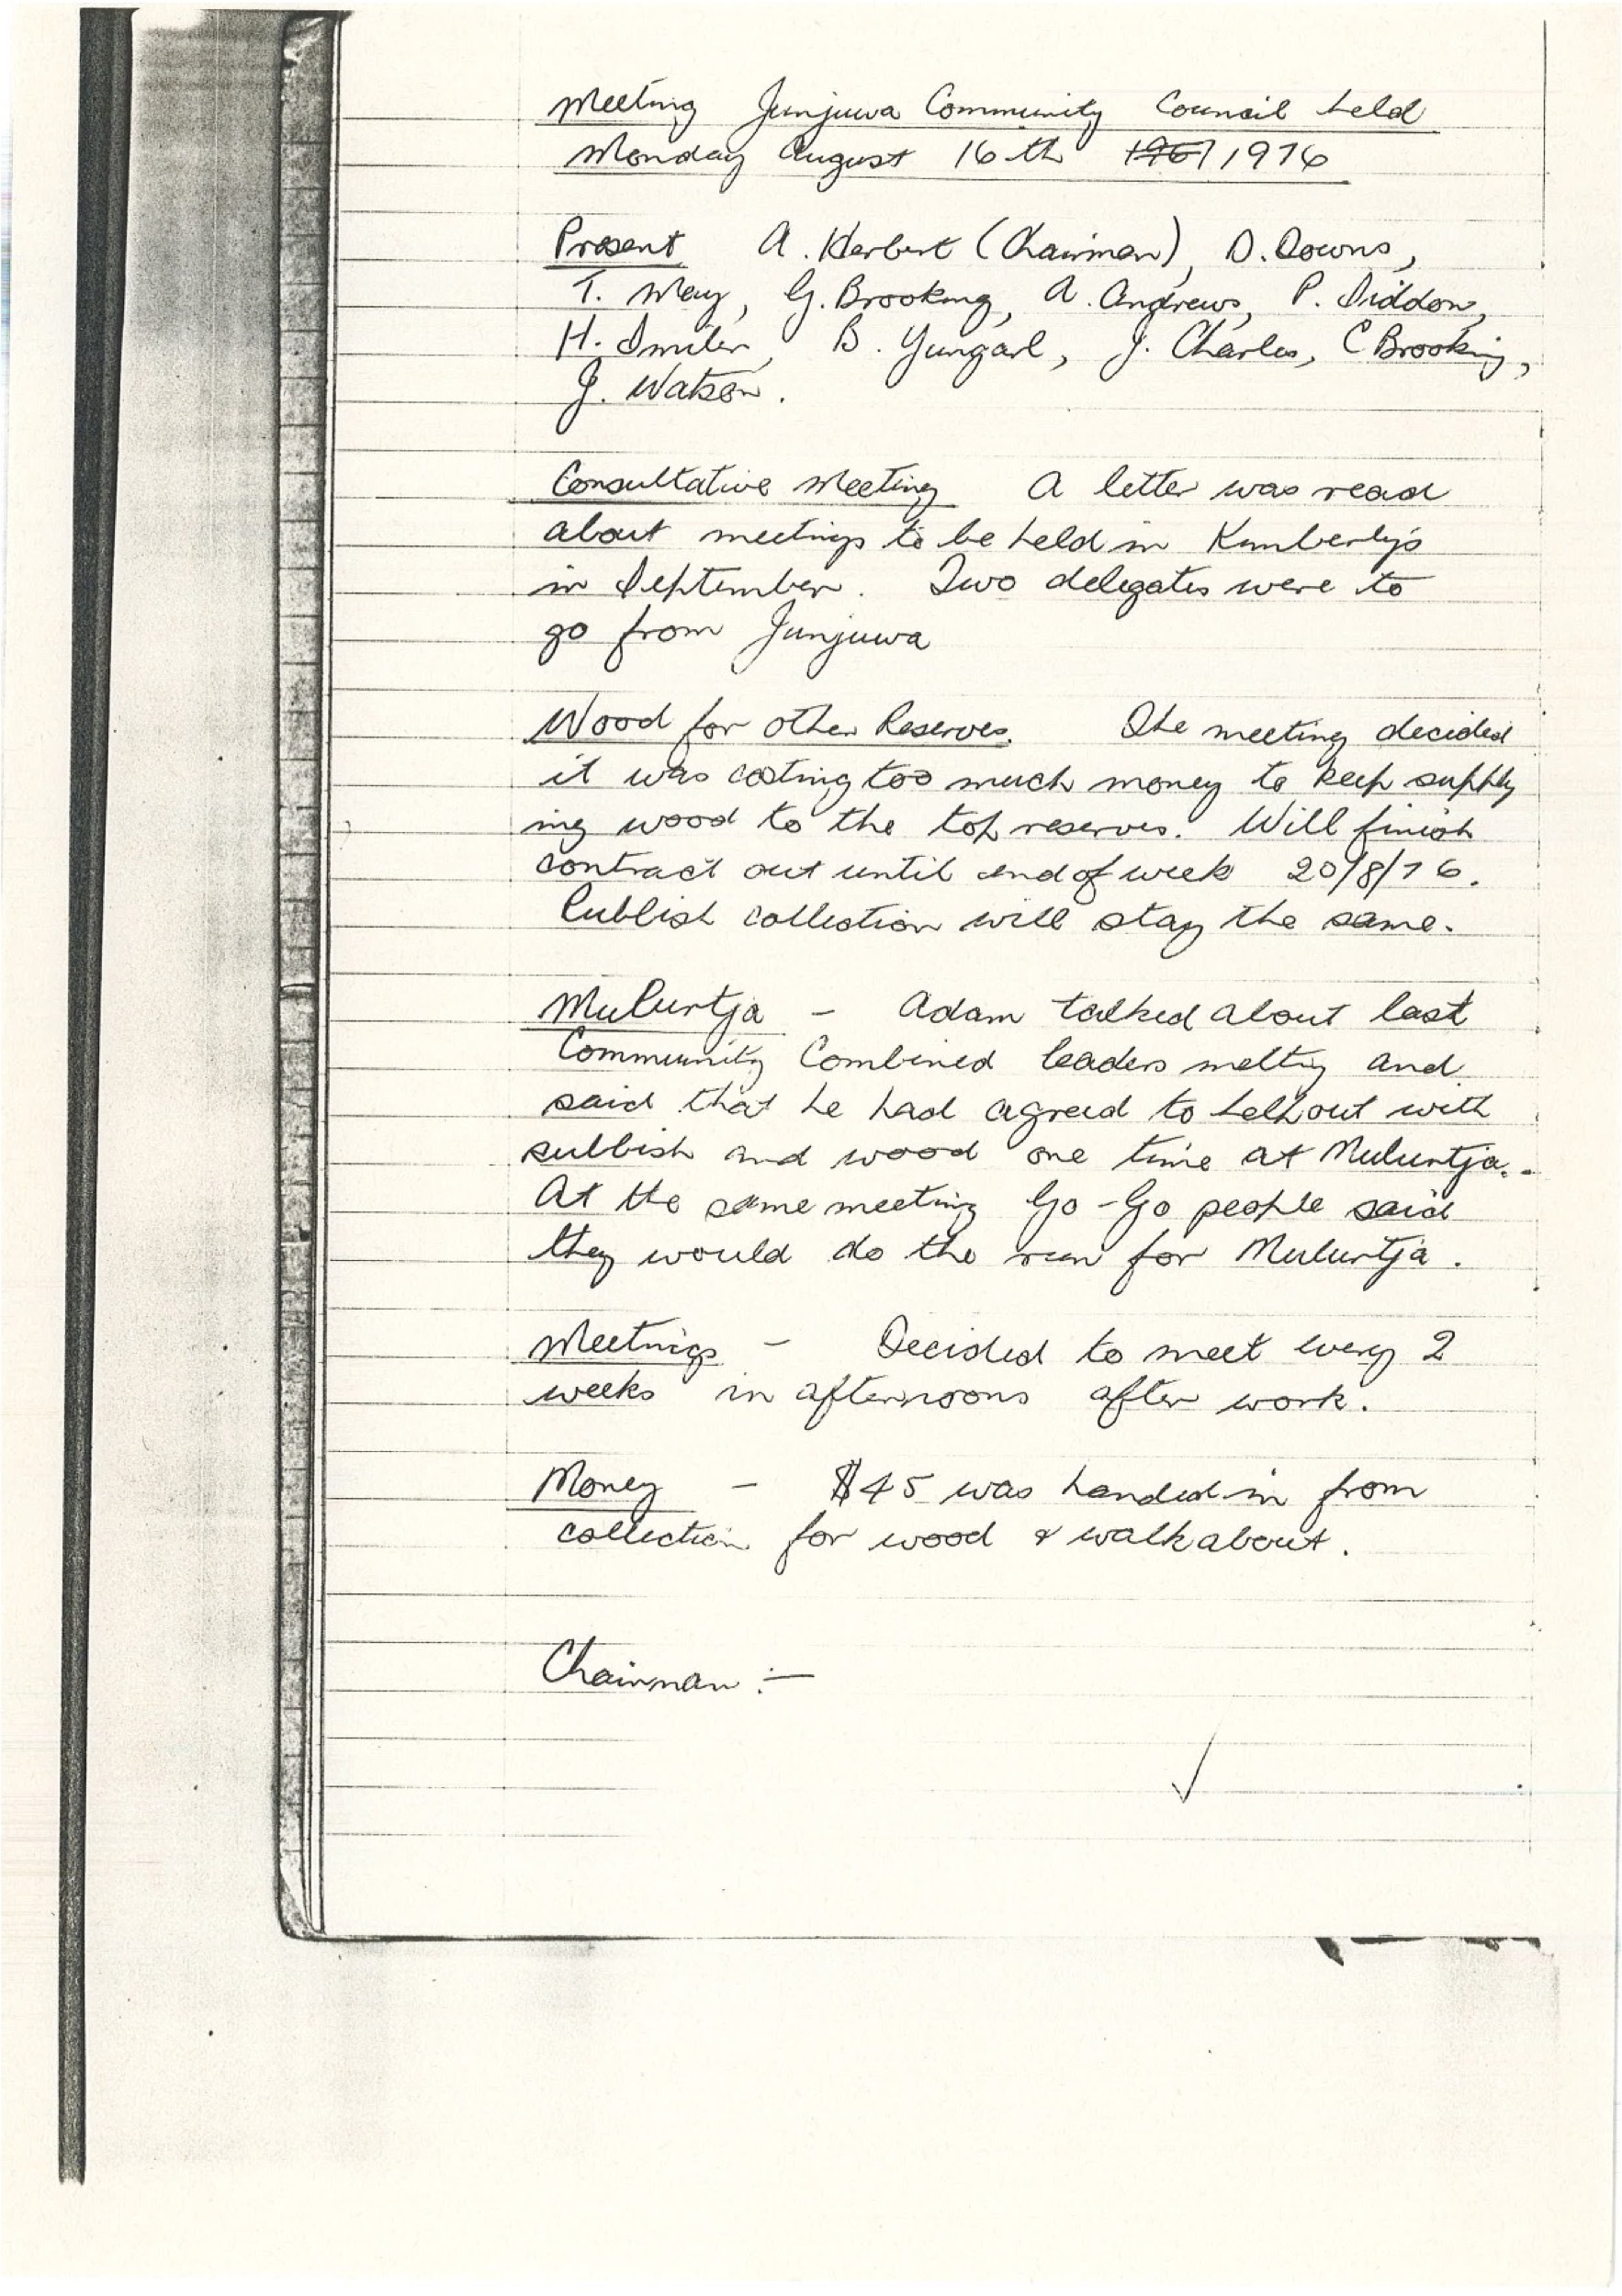 Meeting Junjuwa Community Council held
Monday August 16th 1967 1976
Present A. Herbert (Chairman), D. Downs,
T. May, G. Brooking, A. Andrews, P. Siddon,
H. Smiler, B. Yungarl, J. Charles, C Brooking,
J. Watson.
Consultative Meeting A letter was read
about meetings to be held in Kimberlys
in September. Two delegates were to
go from Junjuwa
Wood for other Reserves. The meeting decided
it was costing too much money to keep supply
ing wood to the top reserves. Will finish
contract out until end of week 20/8/76.
Rubbish collection will stay the same.
Mulurtja - Adam talked about last
Community Combined leaders meeting and
said that he had agreed to help out with
rubbish and wood one time at Mulurtja.
At the same meeting Go-Go people said
they would do the run for Mulurtja.
Meetings - Decided to meet every 2
weeks in afternoons after work.
Money - $45 was handed in from
collection for wood & walkabout.
Chairman :-